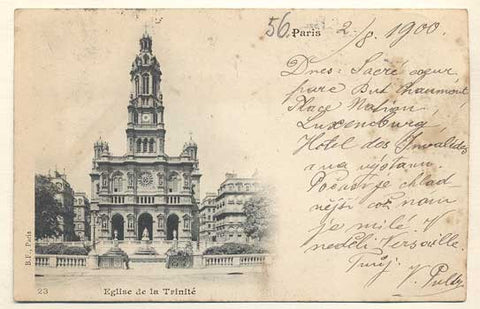 56.
Paris
2./8. 1900.
Dnes: Sacré coeur,
parc But Chaumont
Place Nation,
Luxenbourg,
Hotel des Invalides
a na výstavu.
Počasí je chlad
nější což nám
je milé. V
neděli Versaille.
Tvůj.
V.
B.F., Paris
23
Eglise de la Trinité